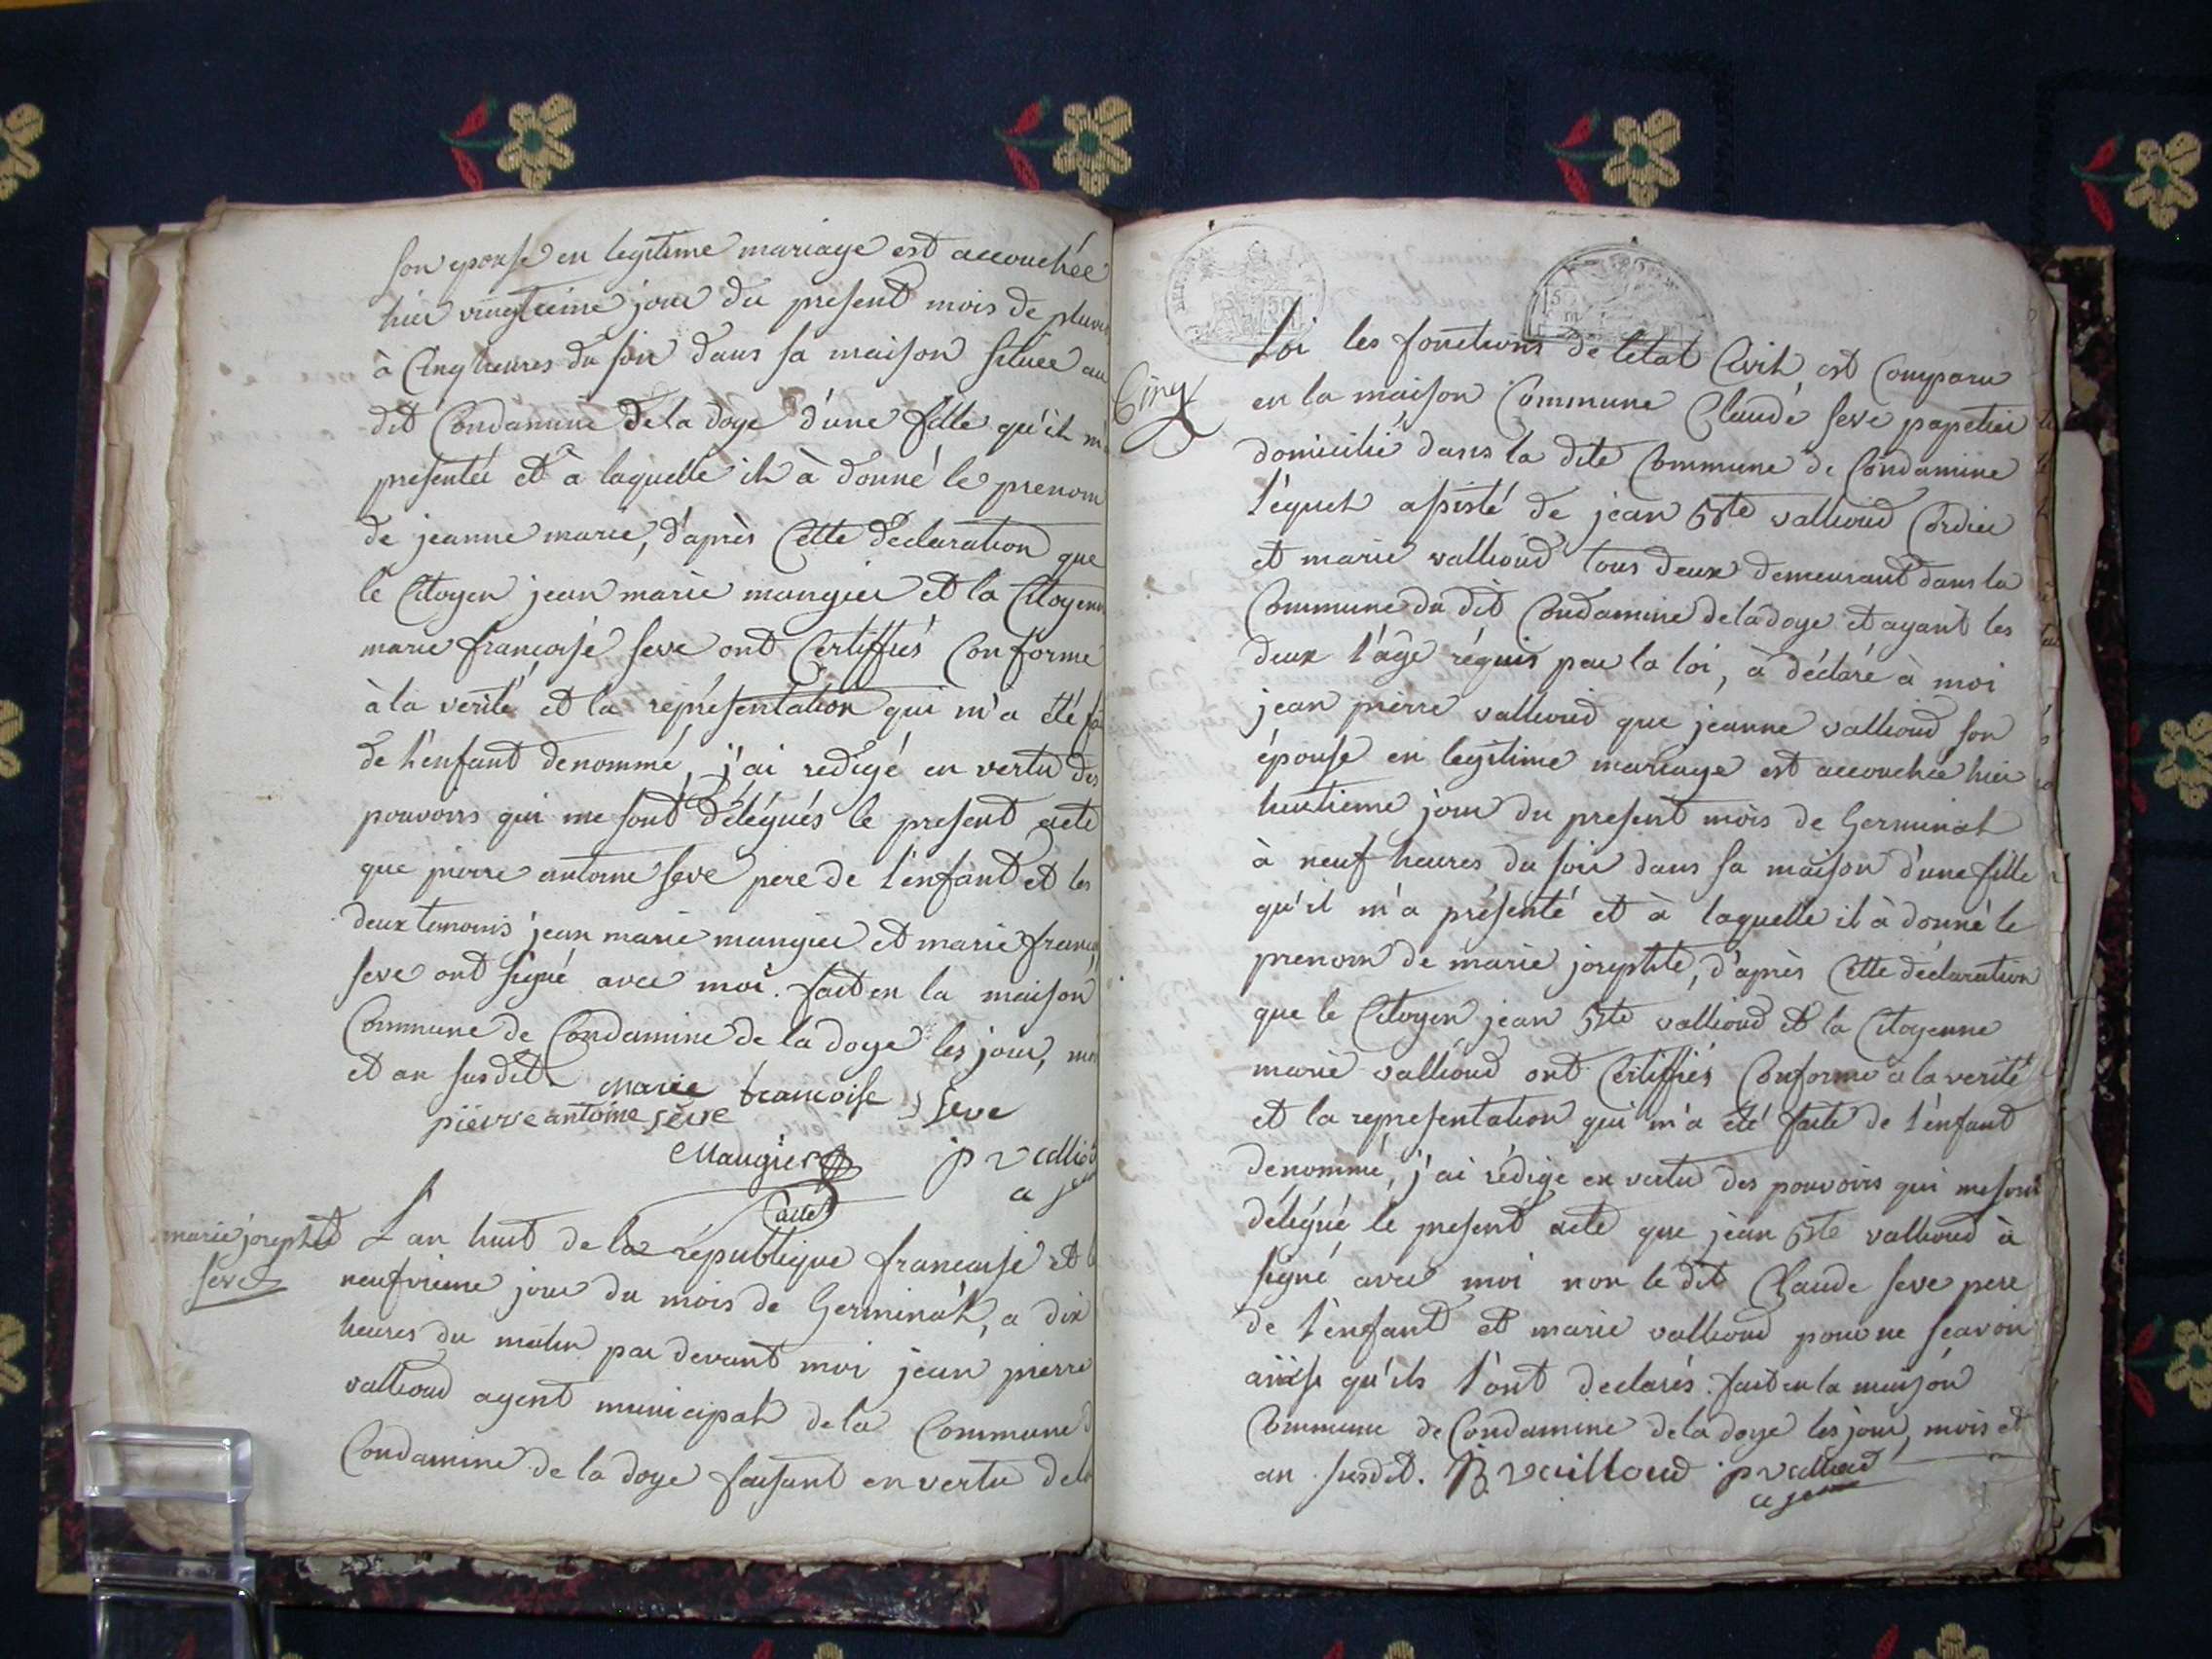 son epouse en legitime mariage est accouchée
hier vingtieme jour du present mois de pluvi
à Cinq heures du soir dans sa maison située au
dit Condamine De la doye d'une fille qu'il m'
presentée et à laquelle il à donné le prenom
de jeanne marie, d'après Cette déclaration que
le Citoyen jean marie mangier et la Citoyenne
marie francoise seve ont Certiffiés Conforme
à la verité et la répresentation qui m'a été fa
de l'enfant denommé, j'ai redigé en vertu des
pouvoirs qui me sont délégués le present acte
que pierre antoine seve pere de l'enfant et les
deux temoins jean marie mangier et marie franco
seve ont signé avec moi. fait en la maison
Commune de Condamine de la doye les jour, moi
et an susdit.
marie francoise seve
pierre antoine seve
Maugier
p valliou
marie josephte
seve
L'an huit de la république francaise et l
neufvieme jour du mois de Germinal, a dix
heures du matin par devant moi jean pierre
vallioud agent municipal de la Commune d
Condamine de la doye faisant en vertu de la
Cinq
50
loi les fonctions de l'état Civil est Comparu
en la maison Commune Claude seve papetier
domicilié dans la dite Commune de Condamine
l'équel assisté de jean Bte vallioud Cordier
et marie vallioud tous deux demeurant dans la
Commune du dit Condamine de la doye et ayant les
deux l'âge réquis par la loi, à déclaré à moi
jean pierre vallioud que jeanne vallioud son
épouse en legitime mariage est accouchée hier
huitieme jour du present mois de Germinal
à neuf heures du soir dans sa maison d'une fille
qu'il m'a présenté et à laquelle il à donné le
prenom de marie josephte, d'après Cette déclaration
que le Citoyen jean Bte vallioud et la Citoyenne
marie vallioud ont Certiffiés Conforme a la verité
et la representation qui m'a été faite de l'énfant
dénommé, j'ai rédigé en vertu des pouvoirs qui me sont
délégué le present acte que jean Bte vallioud à
signé avec moi non le dit Claude seve pere
de l'énfant et marie vallioud pour ne scavoir
qu'ils l'ont declarés. fait en la maison
Commune de Condamine de la doye les jour, mois et
an susdit. JB vailloud p vallioud